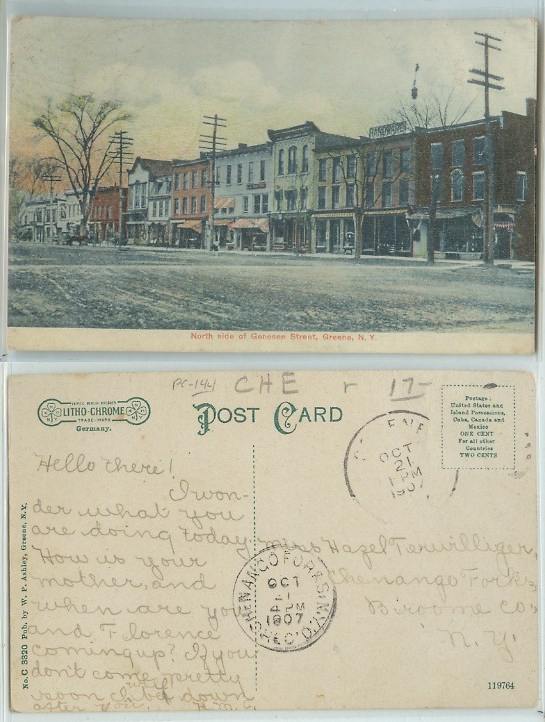 HARDWARE
North side of Genesee Street, Greene, N. Y.
PC-144 CHE r 17-
LITHO-CHROME
TRADE-MARK
Germany.
POST CARD
Postage:
United States and
Island Possessions,
Cuba, Canada and
Mexico
ONE CENT
For all other
Countries
TWO CENTS
OCT
21
1 PM
1907
Hello there!
I won-
der what you
are doing today.
How is your
mother, and
when are you
and Florence
coming up? If you
don't come pretty
soon I'll be down
after you. H.M.C.
Miss Hazel Terwilliger,
Chenango Forks
Broome Co.
N.Y.
CHENANGO FORKS, N.Y.
OCT
21
4 PM
1907
REC'D.
No. C 3320 Pub. by W. P. Ashley, Greene, N.Y.
119764